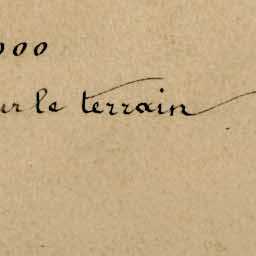 000
ur le terrain